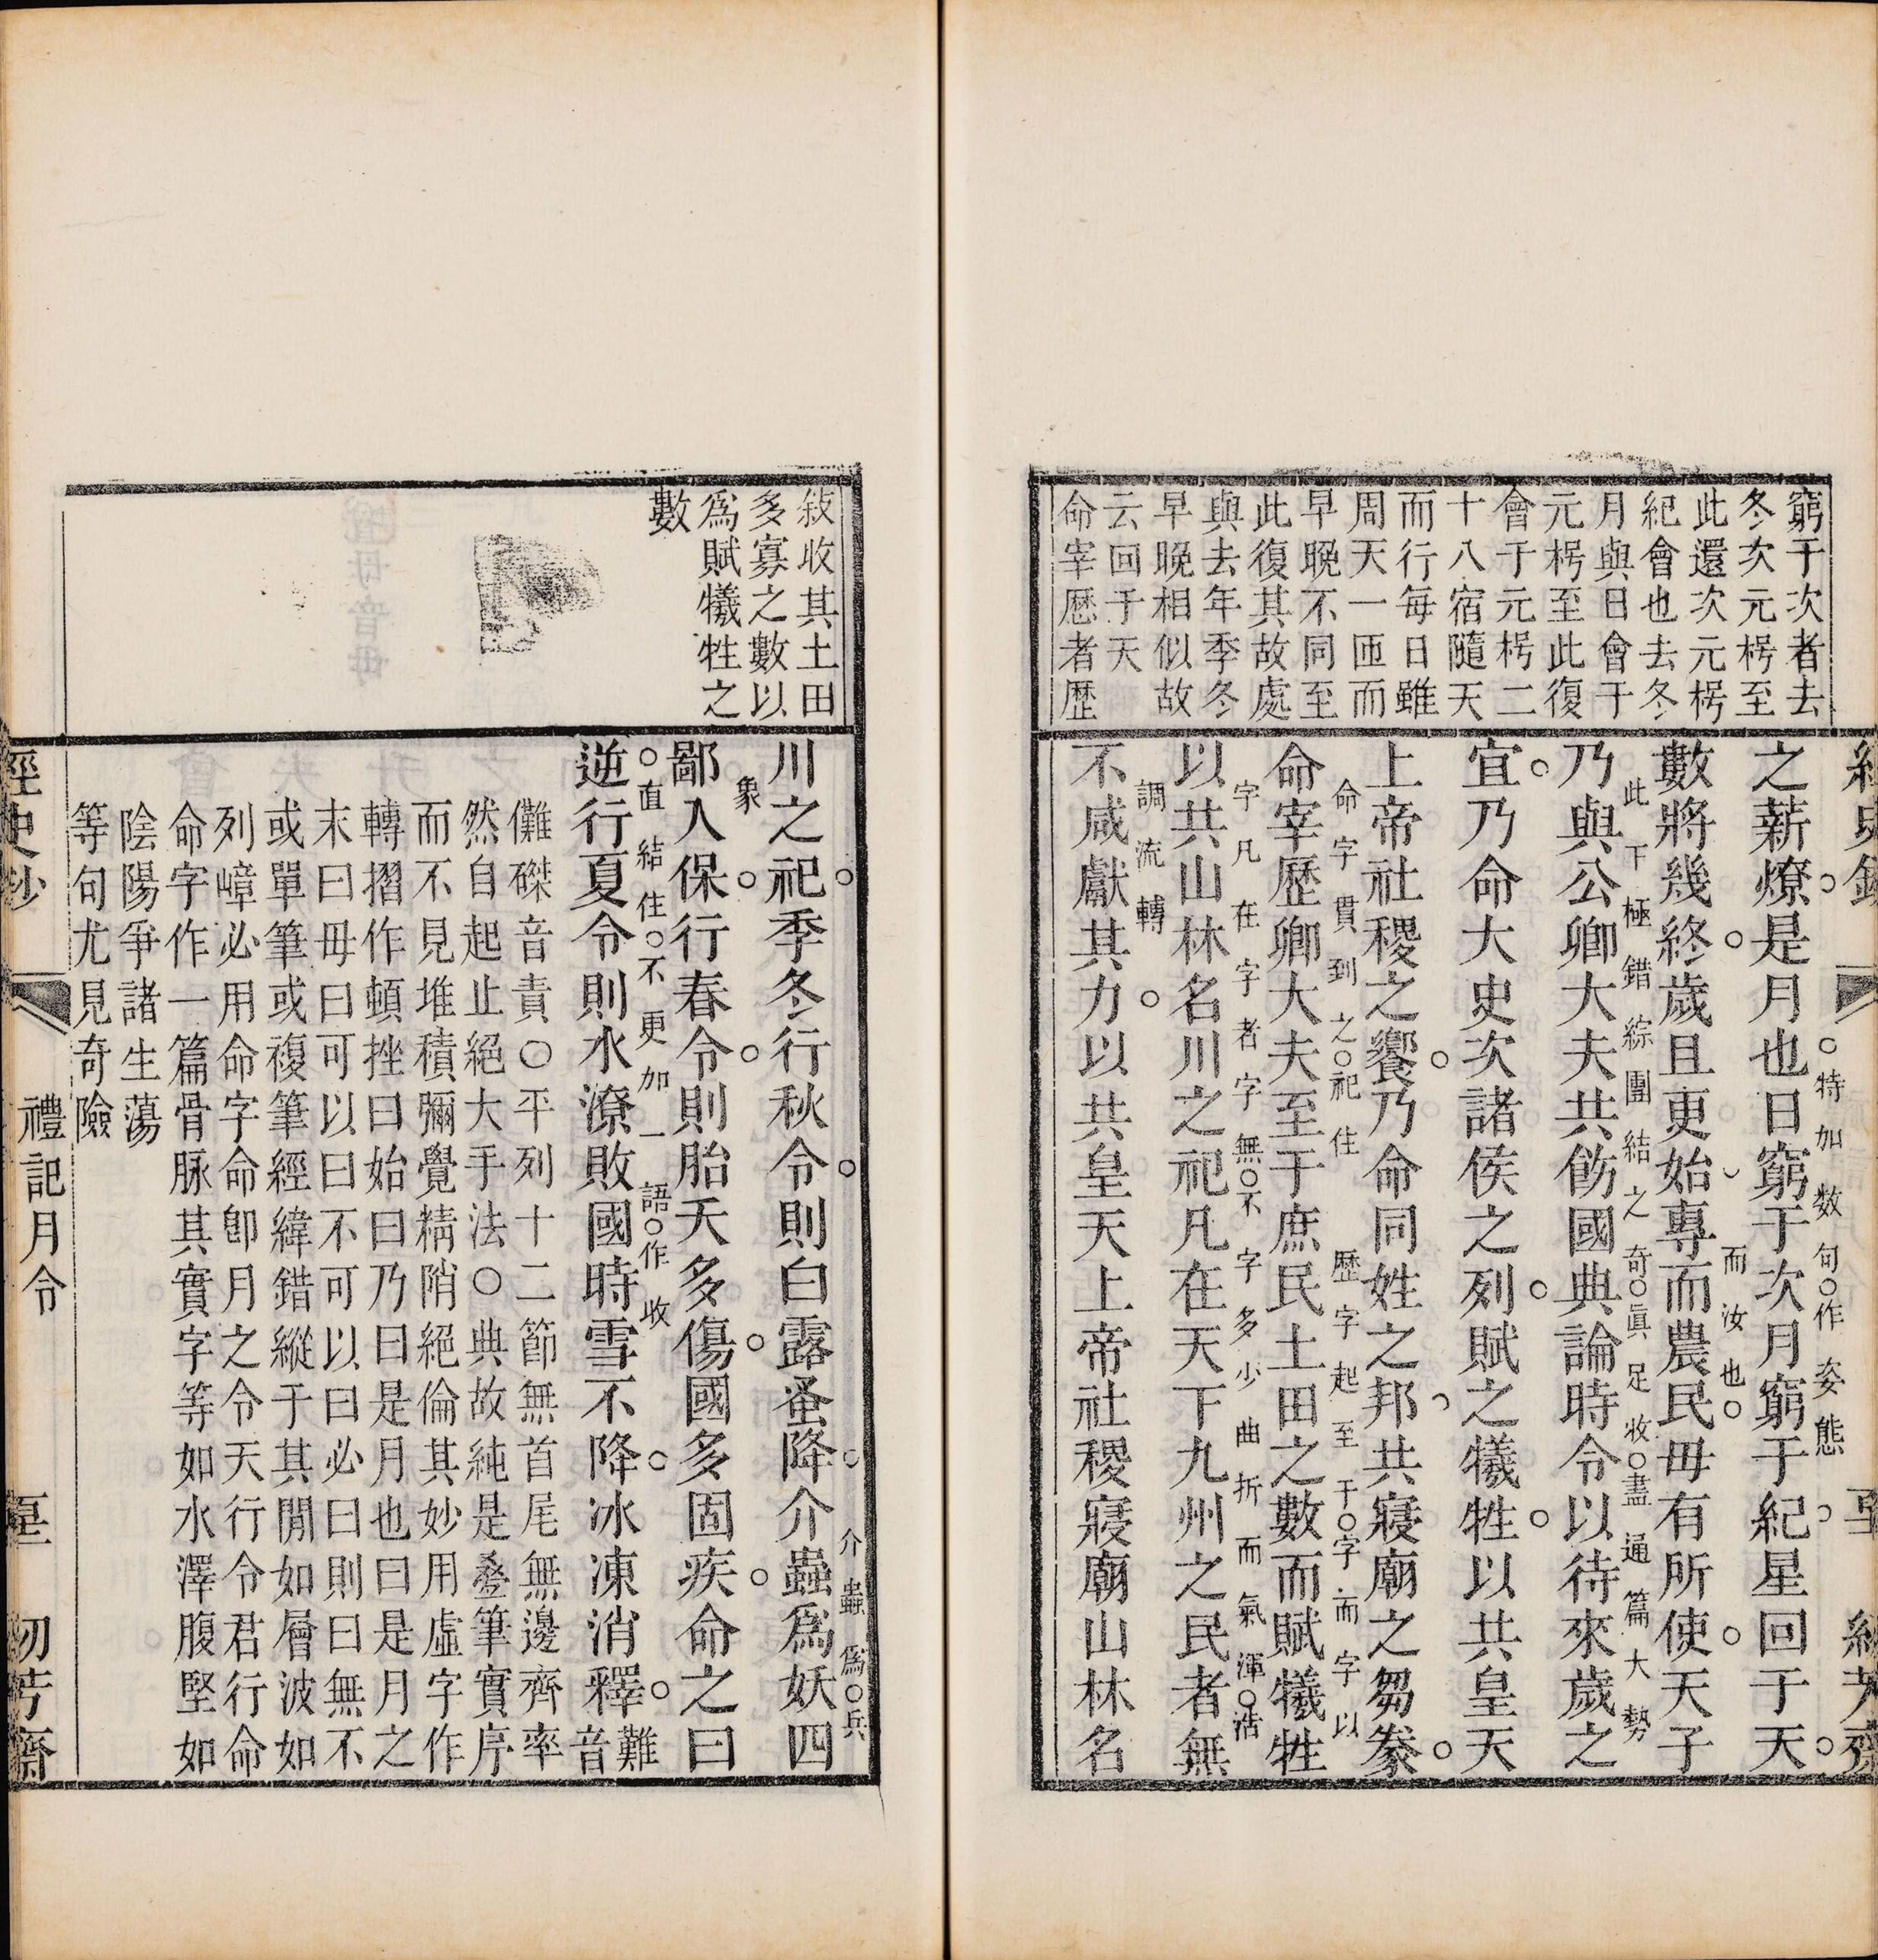 窮于次者去
冬次元枵至
此還次元枵
紀會也去冬
月與日會于
元枵至此復
會于元枵二
十八宿隨天
而行每日雖
周天一匝而
早晚不同至
此復其故處
與去年季冬
早晚相似故
云回于天
命宰歷者歷
之薪燎是月也日窮于次月窮于紀星回于天
特加数句作姿態
數將幾終歲且更始專而農民毋有所使天子
而汝也
乃與公卿大夫共飭國典論時令以待來歲之
此下極錯綜團結之奇真足收盡通篇大勢
宜乃命大史次諸侯之列賦之犧牲以共皇天
上帝社稷之饗乃命同姓之邦共寢廟之芻豢
命宰歷卿大夫至于庶民土田之數而賦犧牲
命字貫到之祀住 歷字起至于字而字以
以共山林名川之祀凡在天下九州之民者無
字凡在字者字無不字多少曲折而氣渾浩
不咸獻其力以共皇天上帝社稷寢廟山林名
調流轉
敘收其土田
多寡之數以
為賦犧牲之
數
川之祀季冬行秋令則白露蚤降介蟲為妖四
介蟲為兵
象
鄙入保行春令則胎夭多傷國多固疾命之曰
逆行夏令則水潦敗國時雪不降冰凍消釋難音
直結住不更加一語作收
儺磔音責○平列十二節無首尾無邊齊率
然自起止絕大手法○典故純是叠筆實序
而不見堆積彌覺精陗絕倫其妙用虛字作
轉摺作頓挫曰始曰乃曰是月也曰是月之
末曰毋曰可以曰不可以曰必曰則曰無不
或單筆或複筆經緯錯縱于其閒如層波如
列嶂必用命字命卽月之令天行令君行命
命字作一篇骨脉其實字等如水澤腹堅如
陰陽爭諸生蕩
等句尤見奇險
經史鈔 禮記月令 初芳齋